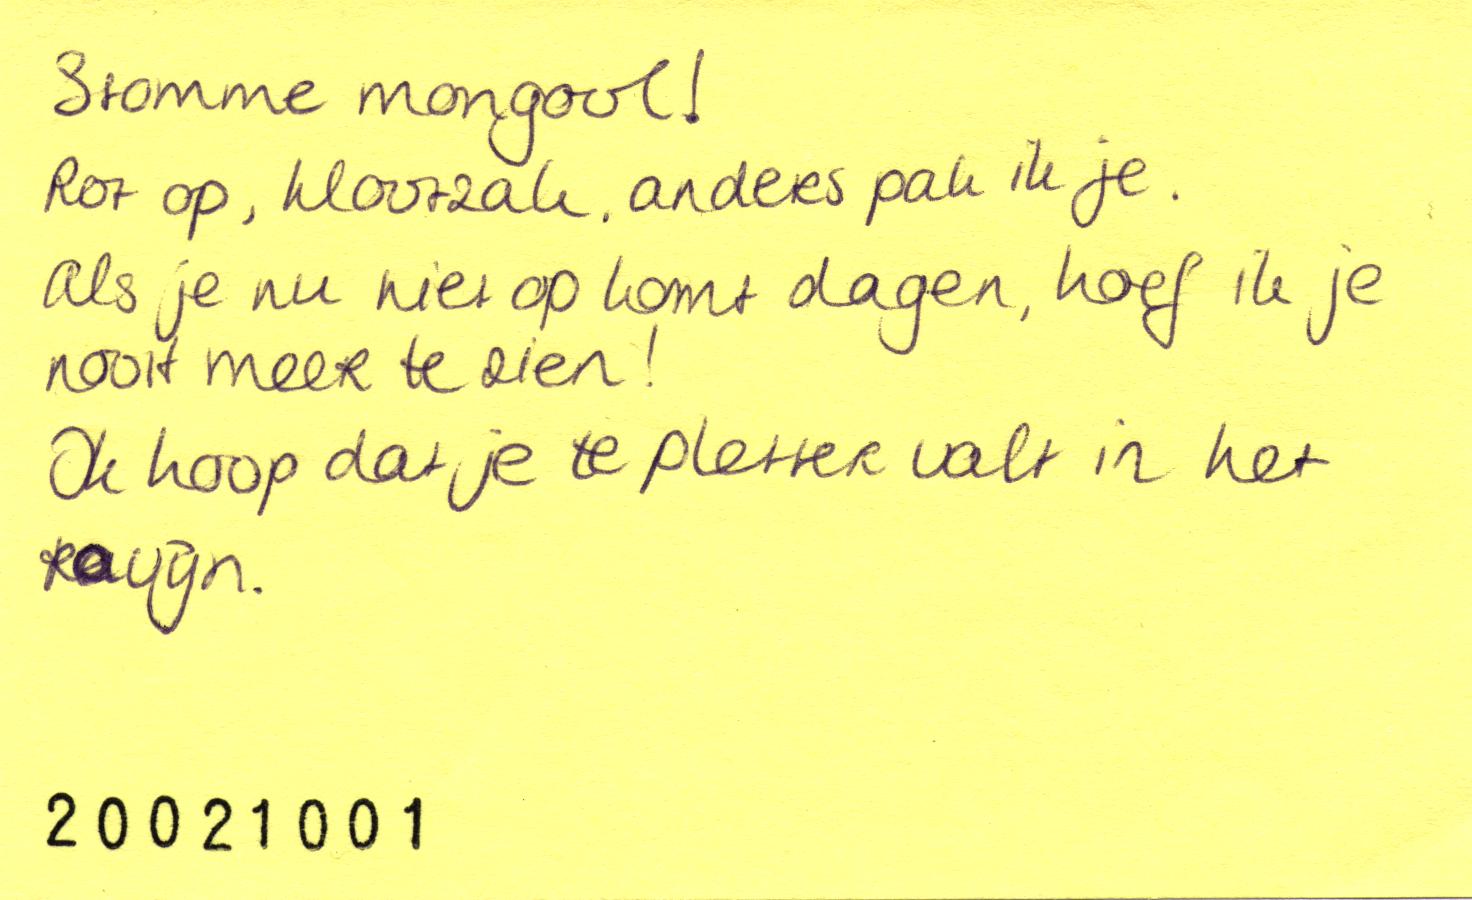 Stomme mongool!
Rot op, klootzak, anders pak ik je.
Als je nu niet op komt dagen, hoef ik je
nooit meer te zien!
Ik hoop dat je te pletter valt in het
ravijn.
20021001